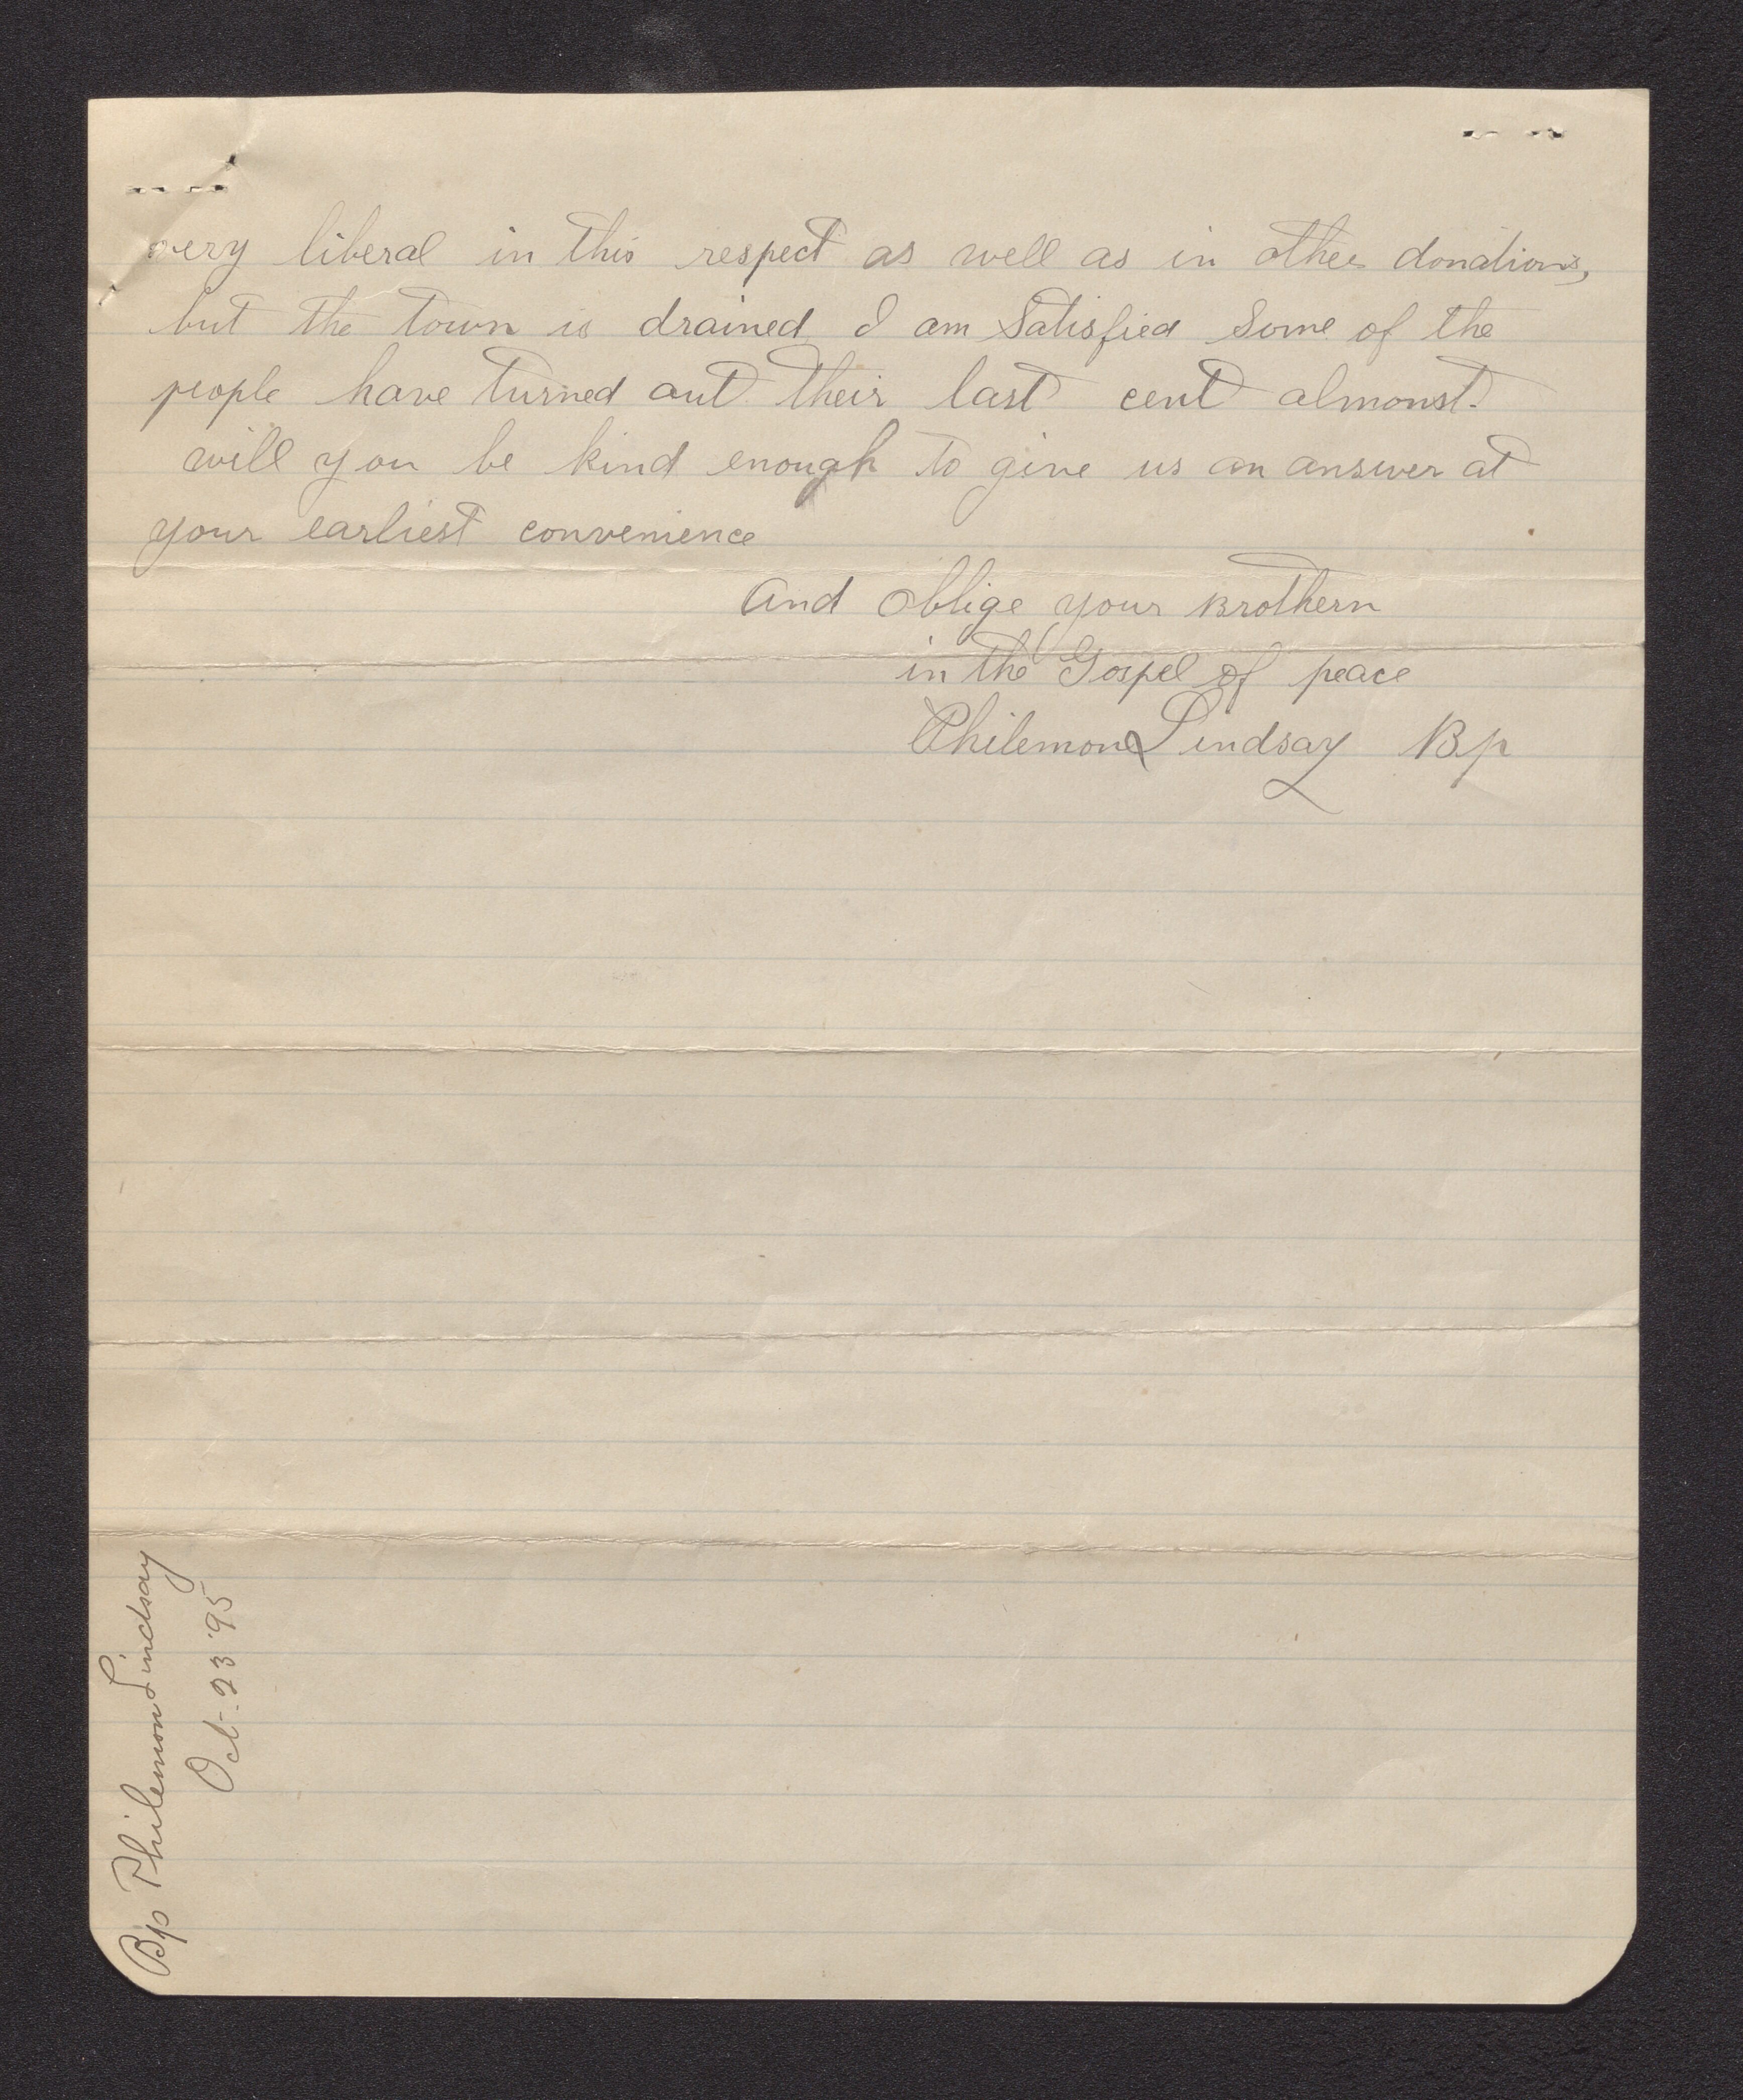 very liberal in this respect as well as in other donations,
but the town is drained I am Satisfied Some of the
people have turned out their last cent almonst.
will you be kind enough to give us an answer at
your earliest convenience
And Oblige your Brothern
in the Gospel of peace
Philemon Lindsay Bp
Bp Philemon Lindsay
Oct. 23 '95